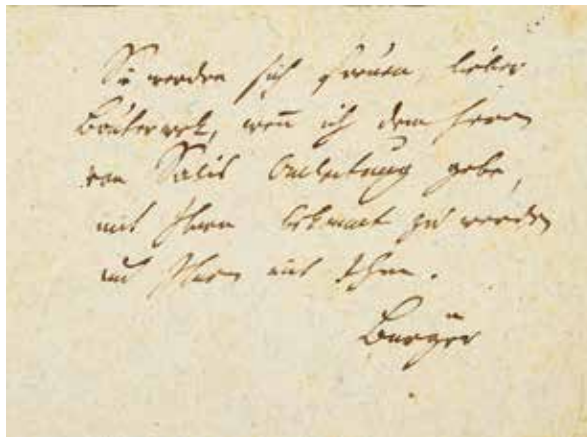 Sie werden sich freuen, lieber
Bouterwek, weñ ich dem Herrn
von Salis Anleitung gebe,
mit Ihnen bekannt zu werden
und Ihnen mit Ihm.
Bürger